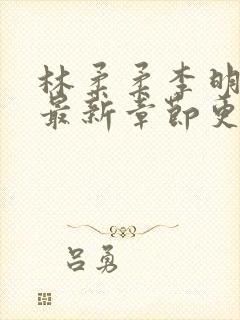 林柔柔李明
最新章节更
吕勇